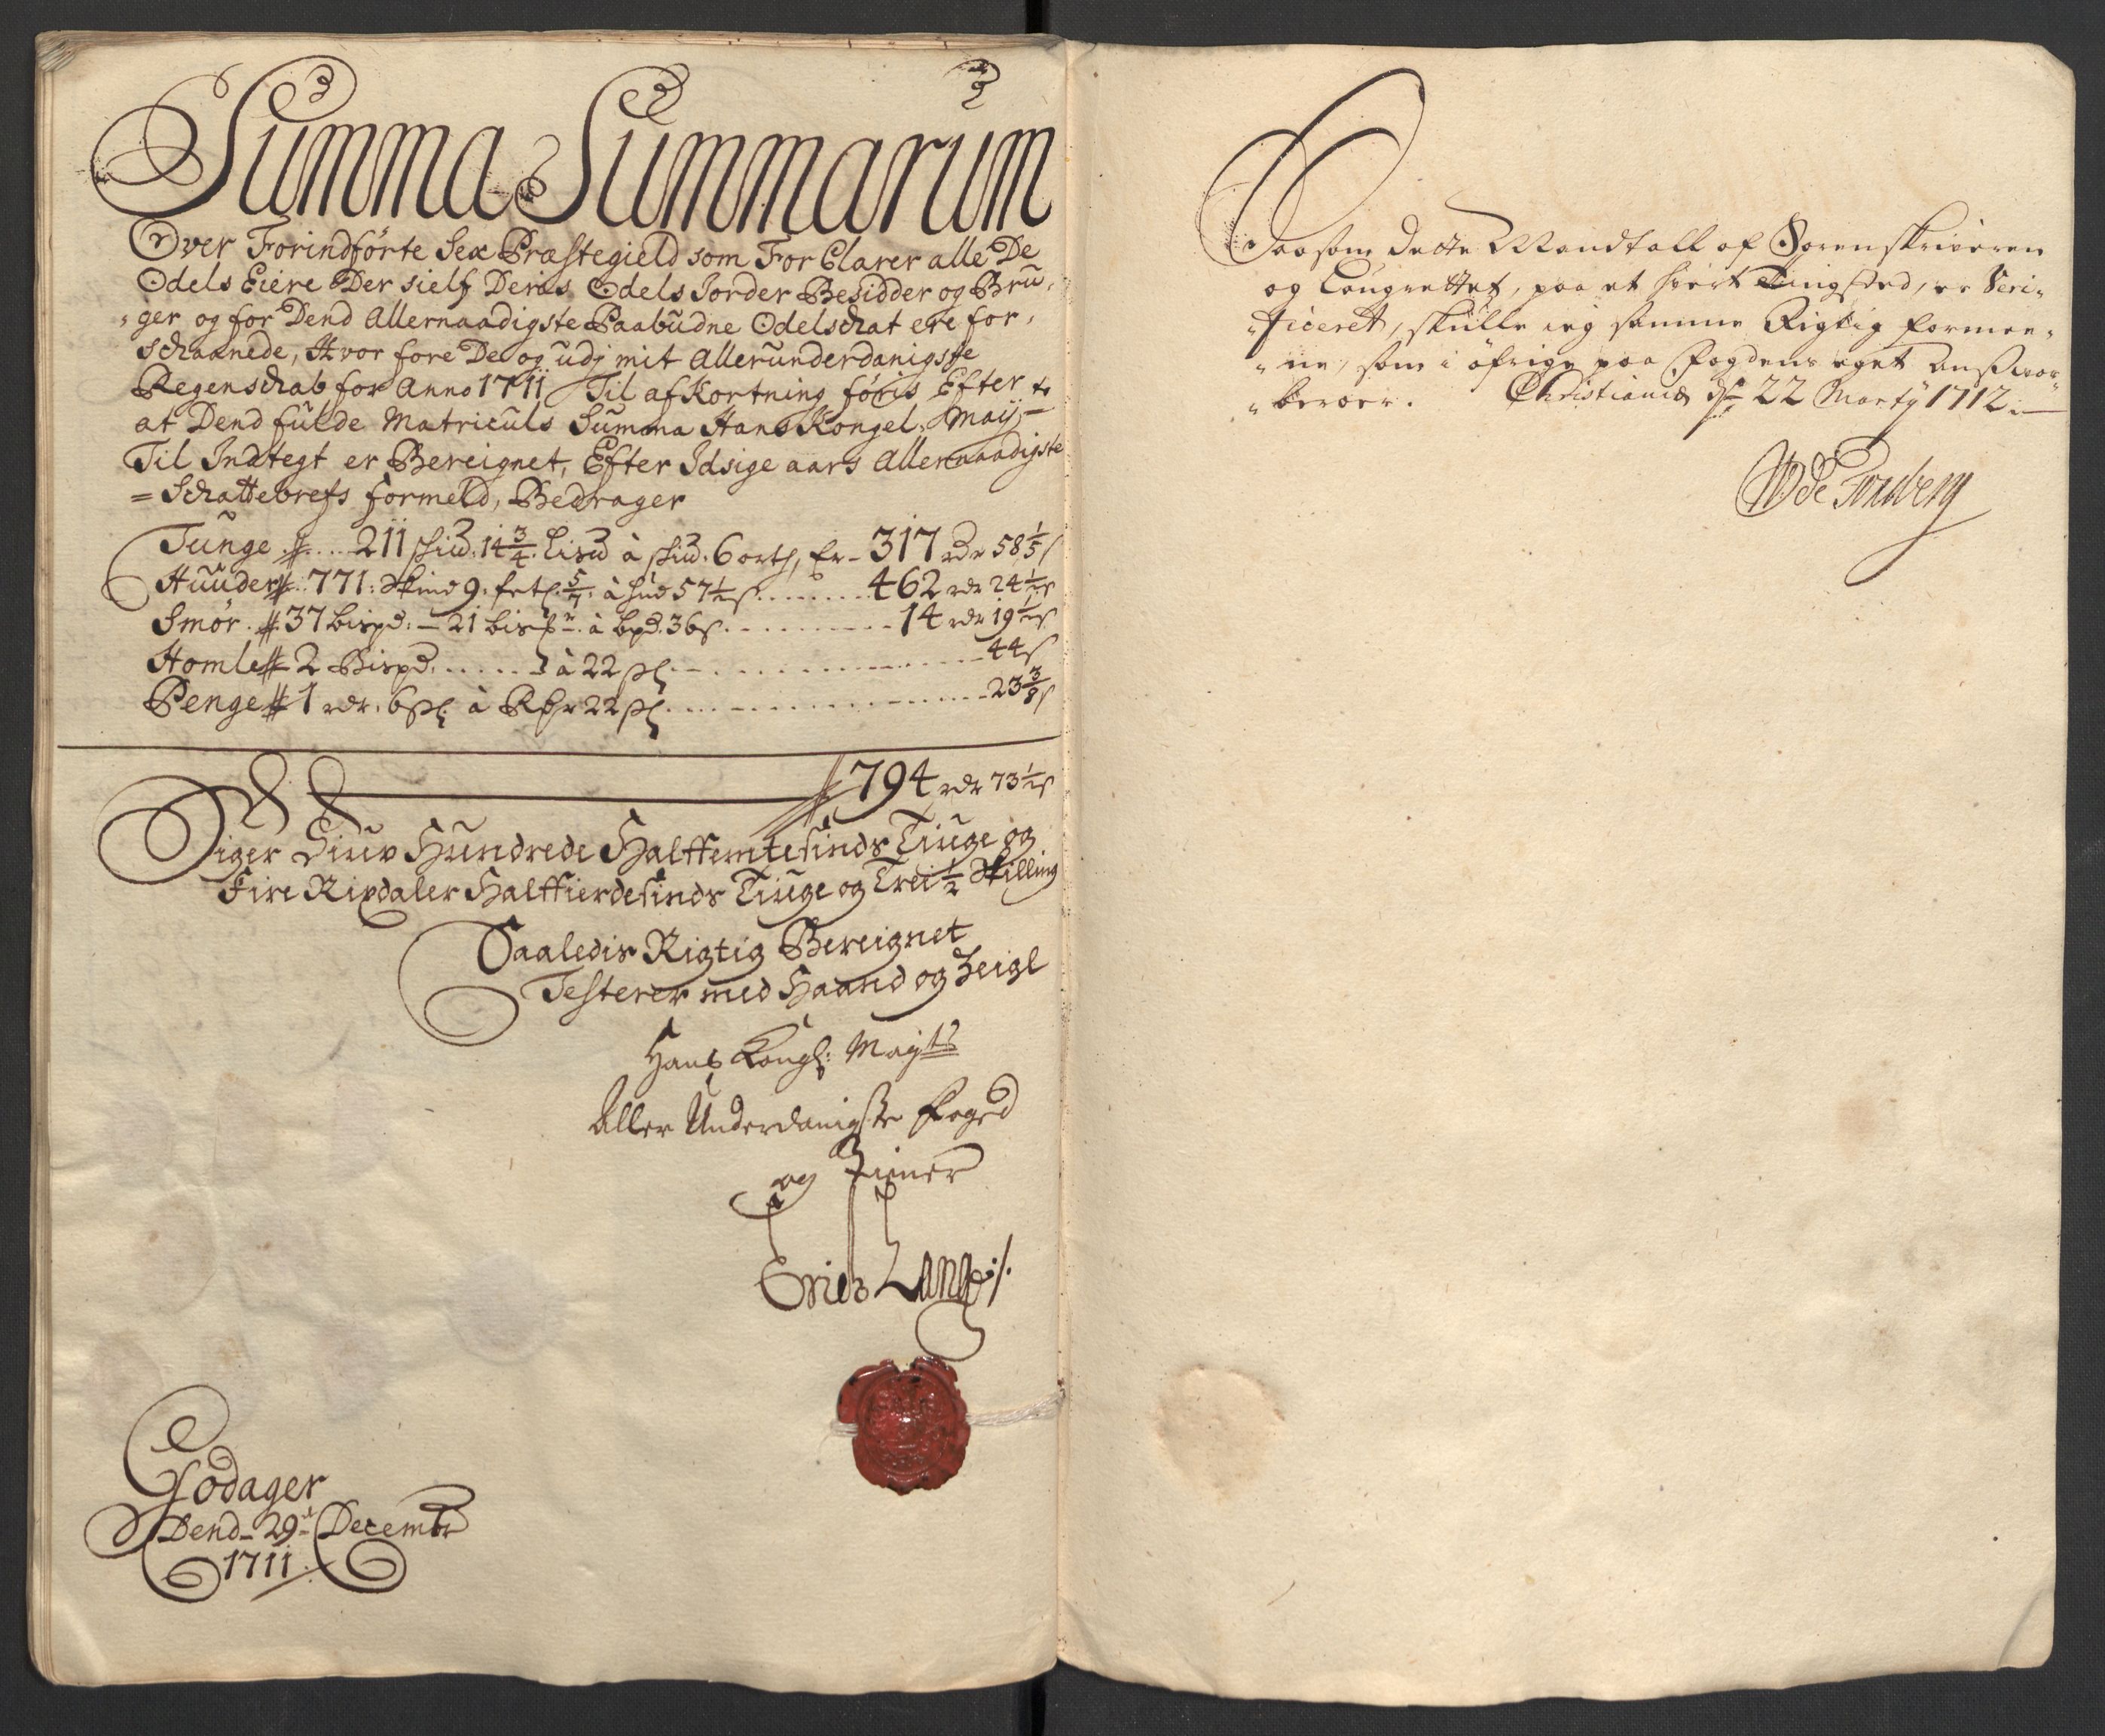 Summa Summarum
Over Forindførte Sex Præstegield som For Clarer alle De
Odels Eiere Der sielf Deris Odels Jorder Besidder og Brü„
„ger og for Dend Allernaadigste Paabüdne Odelschat ere for„
schaanede, Hvor fore De og üdj mit Alleründerdanigste
Regenschab for Anno 1711 Til afKortning føris Efter
at Dend fülde Matriculs Summa Hans Kongel: Maij:
Til Indtegt er Bereignet, Efter Idsige aars Allernaadigste
= Schattebrefs formeld, Bedrager
Tunge 211 skiud: 14 3/4 Lisd à skiud. 6 ortl, Er 317 rdr 58 1/5 s
Huuder 771: Skind 9: 5/7 à hud 57 1/2 s 462 rdr 24 1/2 s
Smør 37 bispd: 21 à bpd. 36 s. 14 rdr 19 1/2 s
Homle 2 Bispd. à 22 sl 44 s
Penge 1 rdr. 6 sl à Rdr 22 sl 23 3/8 s
794 rdr 73 1/2 s
Siger Siuv Hundrede Halffemtesinds Tiuge og
Fire Rixdaler Halffierdesinds Tiuge og Trei 1/2 Skilling
Saaledis Rigtig Bereignet
Testerer med Haand og Zeigl
Hans Kongl: Mayts
Aller Underdanigste Foged
og Tiener
Erich Lang ./.
Godager
Dend 29 Decembr
1711
Saasom dette Mandtall af Sorenskriveren
og Laugrettet, paa et hvert Tingsted, er Veri„
„ficeret, skulle ieg samme Rigtig formee„
„ne, som i øfrige paa Fogdens eget Ansvar
„beroer. Christiania d 22 Marty 1712
WDe Tonsberg